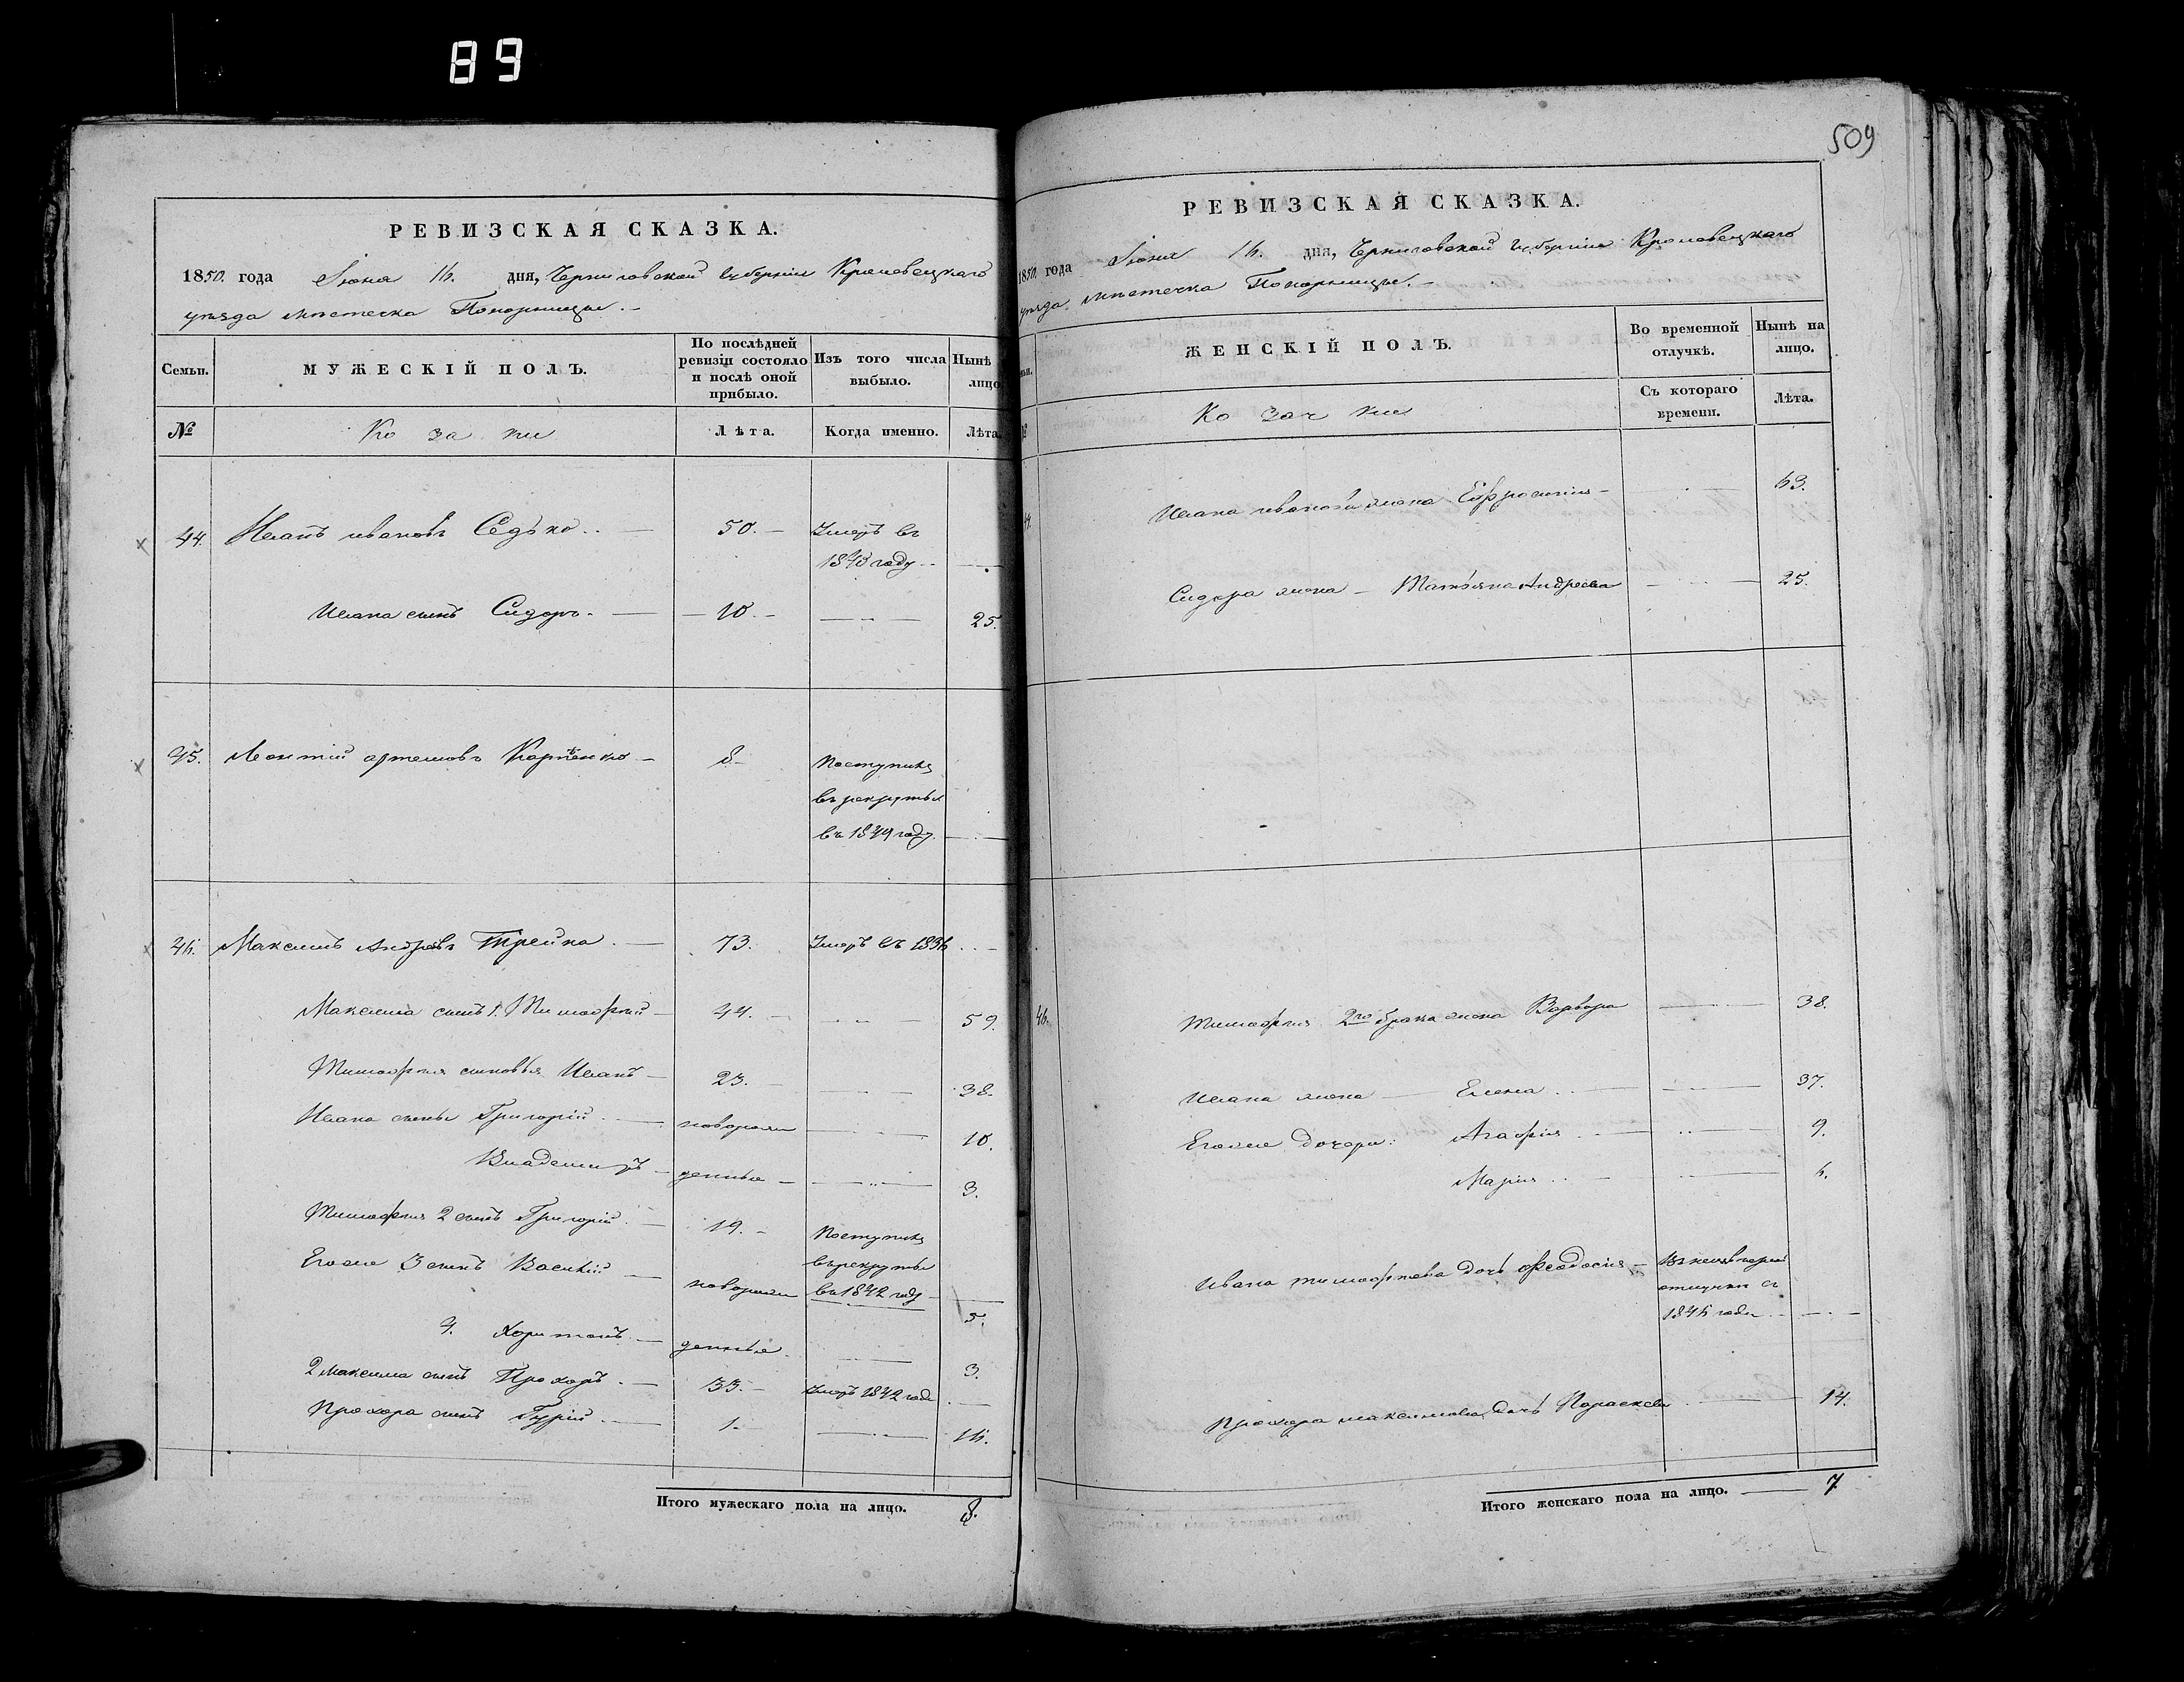 89
509
РЕВИЗСКАЯ СКАЗКА.
1850. года Іюня 16. дня, Черниговской Губерніи Кролевецкаго
уѣзда мѣстечка Понорницы.
Семьи.
МУЖЕСКІЙ ПОЛЪ.
По послѣдней ревизіи состояло и послѣ оной прибыло.
Изъ того числа выбыло.
Нынѣ
лицо
№
Козаки
Лѣта.
Когда именно.
Лѣта.
44. Иванъ ивановъ Седько 50. Умеръ въ
1840 году
Ивана сынъ Сидоръ. 10. 25.
45. Леонтій артемовъ Карпенко 8 Поступилъ
въ рекруты
въ 1849 году
46. Максимъ Андреевъ Трейка 73. Умеръ въ 1836
Максима сынъ 1. Тимофѣй 44. 59.
Тимофѣя сыновья Иванъ 23. 38.
Ивана сыны Григорій новорож 10.
Владимиръ денные 3.
Тимофѣя 2 сынъ Григорій 19. Поступилъ
въ рекруты
въ 1842 году
Егоже 3 сынъ Василій новорож 5.
4. Харитонъ денные 3.
2 Максима сынъ Прохоръ 33. Умеръ 1842 года
Прохора сынъ Гурій 1. 16.
Итого мужескаго пола на лицо. 8.
РЕВИЗСКАЯ СКАЗКА.
1850. года Іюня 16. дня, Черниговской Губерніи Кролевецкаго
уѣзда мѣстечка Понорницы.
ЖЕНСКІЙ ПОЛЪ.
Во временной отлучкѣ.
Нынѣ на лицо.
Козачки
Съ котораго времени.
Лѣта.
Ивана иванова жена Евфросинія 63.
Сидора жена Татьяна Андреева 25.
46. Тимофѣя 2го брака жена Варвара 38.
Ивана жена Елена 37.
Егоже дочери: Агафія 9.
Марія 6.
Ивана тимофѣева дочь Феодосія
отлучки съ
1846 года
Прохора максимова дочь Параскева 14.
Итого женскаго пола на лицо. 7